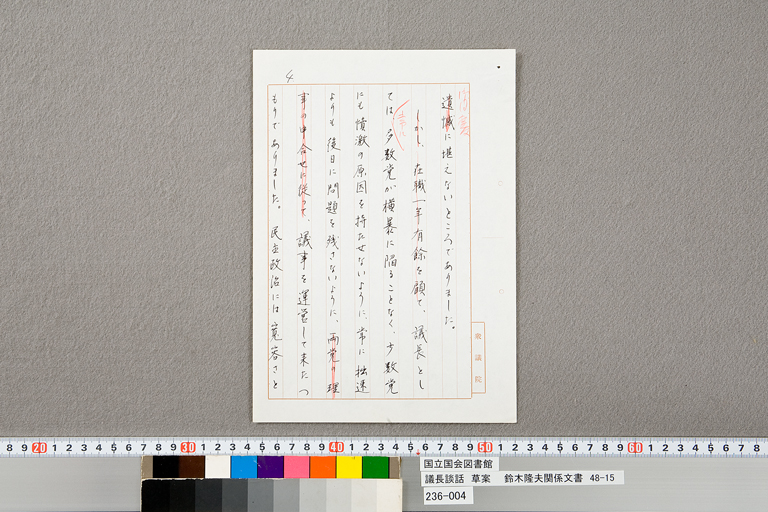 4
遺憾に堪えないところでありました。
しかし、在職一年有餘を顧て、議長とし
ては、多数党が横暴に陥ることなく、少数党
にも憤激の原因を持たせないように、常に拙速
よりも後日に問題を残さないように、両党の理
事の申合せに従って、議事を運営して来たつ
もりでありました。民主政治には寛容さと
衆議院
国立国会図書館
議長談話 草案 鈴木隆夫関係文書 48-15
236-004